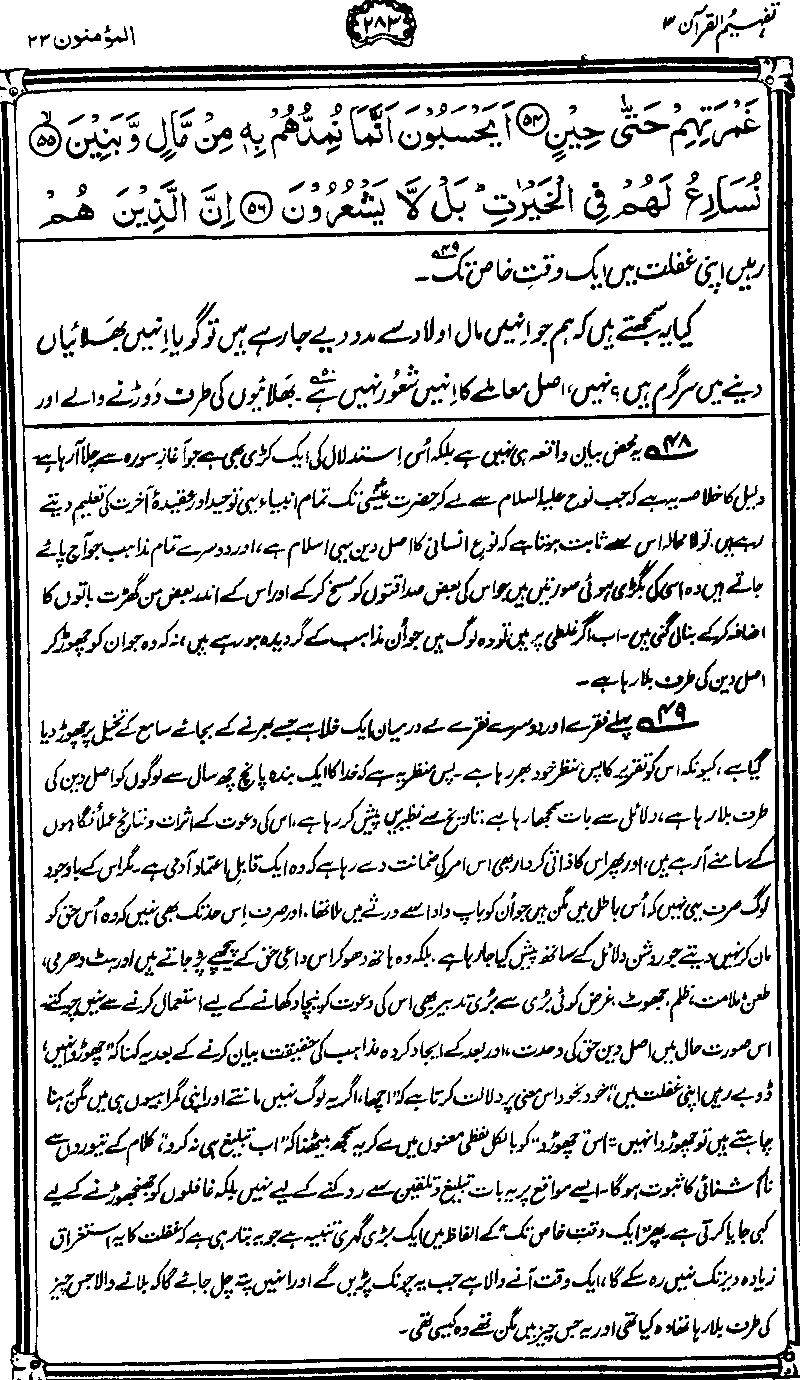 تفہیم القرآن ۳
۲۸۳
المؤمنون ۲۳
غَمْرَتِهِمْ حَتّٰى حِيْنٍ ﴿۵۴﴾ اَيَحْسَبُوْنَ اَنَّمَا نُمِدُّهُمْ بِهٖ مِنْ مَّالٍ وَّبَنِيْنَ ﴿۵۵﴾
نُسَارِعُ لَهُمْ فِي الْخَيْرٰتِ ؕ بَلْ لَّا يَشْعُرُوْنَ ﴿۵۶﴾ اِنَّ الَّذِيْنَ هُمْ
رہیں اپنی غفلت میں ایک وقتِ خاص تک ۴۹؎۔
کیا یہ سمجھتے ہیں کہ ہم جو اِنہیں مال اولاد سے مدد دیے جا رہے ہیں تو گویا اِنہیں بھلائیاں
دینے میں سرگرم ہیں؟ نہیں، اصل معاملے کا اِنہیں شعور نہیں ہے ۵۰؎۔ بھلائیوں کی طرف دَوڑنے والے اور
۴۸؎ یہ محض بیان واقعہ ہی نہیں ہے بلکہ اُس اِستدلال کی ایک کڑی بھی ہے جو آغازِ سورہ سے چلا آ رہا ہے۔
دلیل کا خلاصہ یہ ہے کہ جب نوح علیہ السلام سے لے کر حضرت عیسٰیؑ تک تمام انبیاء یہی توحید اور عقیدۂ آخرت کی تعلیم دیتے
رہے ہیں، تو لا محالہ اس سے ثابت ہوتا ہے کہ نوعِ انسانی کا اصل دین یہی اسلام ہے، اور دوسرے تمام مذاہب جو آج پائے
جاتے ہیں وہ اسی کی بگڑی ہوئی صورتیں ہیں جو اس کی بعض صداقتوں کو مسخ کر کے اور اس کے اندر بعض من گھڑت باتوں کا
اضافہ کر کے بنا لی گئی ہیں۔ اب اگر غلطی پر ہیں تو وہ لوگ ہیں جو اُن مذاہب کے گرویدہ ہو رہے ہیں، نہ کہ وہ جو ان کو چھوڑ کر
اصل دین کی طرف بلا رہا ہے۔
۴۹؎ پہلے فقرے اور دوسرے فقرے کے درمیان ایک خلا ہے جسے بھرنے کے بجائے سامع کے تخیل پر چھوڑ دیا
گیا ہے، کیونکہ اس کو تقریر کا پس منظر خود بھر رہا ہے۔ پس منظر یہ ہے کہ خدا کا ایک بندہ پانچ چھ سال سے لوگوں کو اصل دین کی
طرف بلا رہا ہے، دلائل سے بات سمجھا رہا ہے، تاریخ سے نظیریں پیش کر رہا ہے، اس کی دعوت کے اثرات و نتائج عملاً نگاہوں
کے سامنے آ رہے ہیں، اور پھر اس کا ذاتی کردار بھی اس امر کی ضمانت دے رہا ہے کہ وہ ایک قابلِ اعتماد آدمی ہے۔ مگر اس کے باوجود
لوگ صرف یہی نہیں کہ اُس باطل میں مگن ہیں جو اُن کو باپ دادا سے ورثے میں ملا تھا، اور صرف اِس حد تک بھی نہیں کہ وہ اُس حق کو
مان کر نہیں دیتے جو روشن دلائل کے ساتھ پیش کیا جا رہا ہے، بلکہ وہ ہاتھ دھو کر اس داعیِ حق کے پیچھے پڑ جاتے ہیں اور ہٹ دھرمی،
طعن، ملامت، ظلم، جھوٹ، غرض کوئی بُری سے بُری تدبیر بھی اس کی دعوت کو نیچا دکھانے کے لیے استعمال کرنے سے نہیں چوکتے۔
اس صورت حال میں اصل دینِ حق کی وحدت، اور بعد کے ایجاد کردہ مذاہب کی حقیقت بیان کرنے کے بعد یہ کہنا کہ "چھوڑو انہیں،
ڈوبے رہیں اپنی غفلت میں"، خود بخود اس معنی پر دلالت کرتا ہے کہ "اچھا، اگر یہ لوگ نہیں مانتے اور اپنی گمراہیوں ہی میں مگن رہنا
چاہتے ہیں تو چھوڑو انہیں"۔ اس "چھوڑو" کو بالکل لفظی معنوں میں لے کر یہ سمجھ بیٹھنا کہ "اب تبلیغ ہی نہ کرو"، کلام کے تیوروں سے
ناآشنائی کا ثبوت ہوگا۔ ایسے مواقع پر یہ بات تبلیغ و تلقین سے روکنے کے لیے نہیں بلکہ غافلوں کو جھنجھوڑنے کے لیے
کہی جایا کرتی ہے۔ پھر "ایک وقتِ خاص تک" کے الفاظ میں ایک بڑی گہری تنبیہ ہے جو یہ بتا رہی ہے کہ غفلت کا یہ استغراق
زیادہ دیر تک نہیں رہ سکے گا، ایک وقت آنے والا ہے جب یہ چونک پڑیں گے اور انہیں پتہ چل جائے گا کہ بلانے والا جس چیز
کی طرف بلا رہا تھا وہ کیا تھی اور یہ جس چیز میں مگن تھے وہ کیسی تھی۔